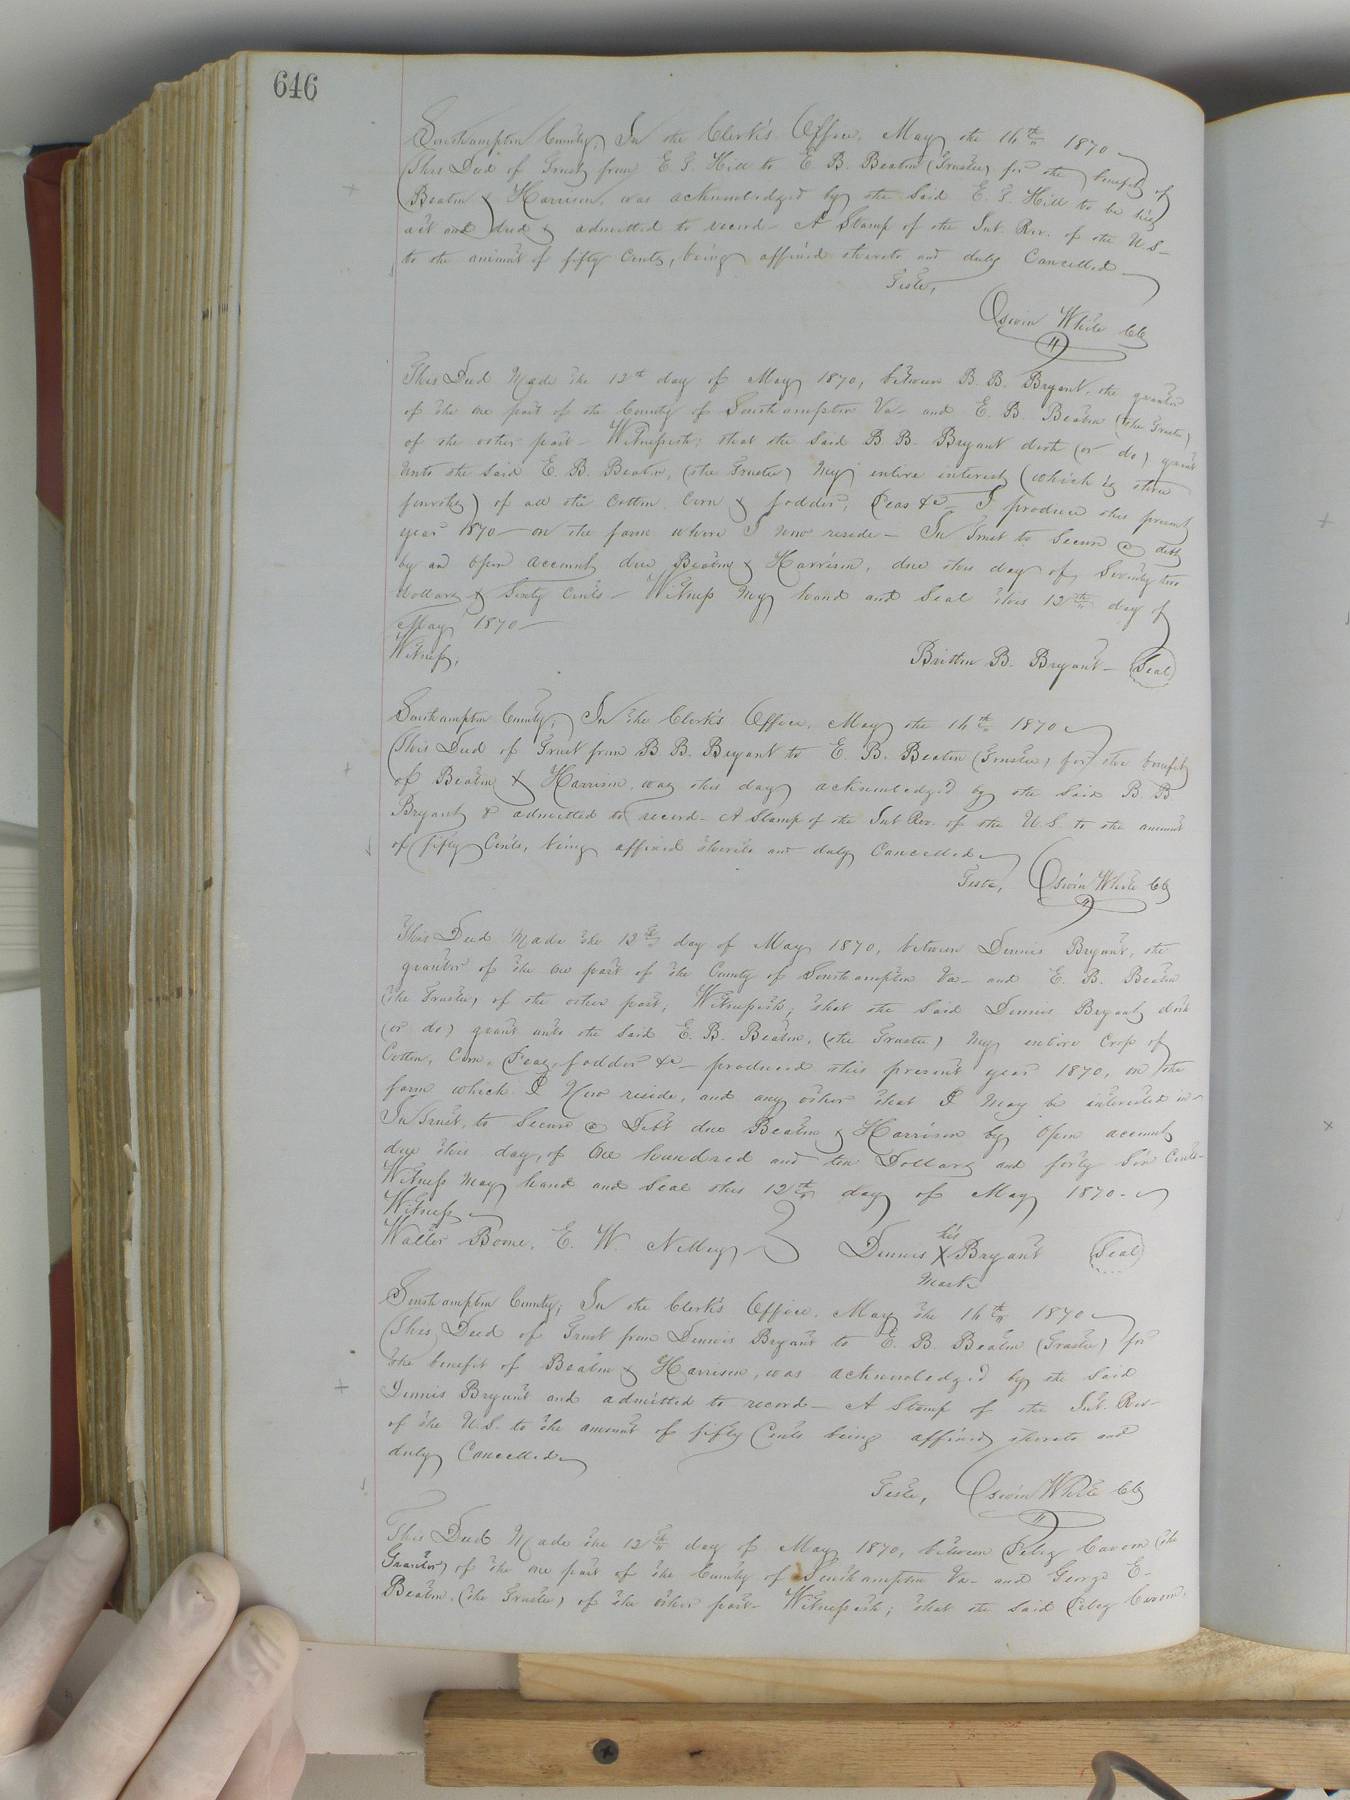 646
Southampton County, In the Clerk's Office, May the 14th 1870
This Deed of Trust from E. T. Hill to E. B. Beaton (Trustee) for the benefit of
Beaton & Harrison, was acknowledged by the said E. T. Hill to be his
act and deed & admitted to record - A Stamp of the Int. Rev. of the U.S -
to the amount of fifty Cents, being affixed thereto and duly Cancelled
Teste,
Oswin White Clk
This Deed Made the 12th day of May 1870, between B. B. Bryant, the grantor
of the one part of the County of Southampton Va - and E. B. Beaton (the Trustee)
of the other part - Witnesseth; that the said B. B. Bryant doth (or do) grant
unto the said E. B. Beaton, (the Trustee) My entire interest (which is three
fourths) of all the Cotton Corn & fodder, Peas &c - I produce this present
year 1870 - on the farm where I now reside - In Trust to Secure a debt
by an Open account due Beaton & Harrison, due this day of Seventy two
Dollars & Sixty Cents - Witness My hand and Seal this 12th day of
May 1870 -
Witness,
Britton B. Bryant - (Seal)
Southampton County, In the Clerk's Office, May the 14th 1870
This Deed of Trust from B B. Bryant to E. B. Beaton (Trustee) for the benefit
of Beaton & Harrison was this day acknowledged by the said B. B
Bryant & admitted to record - A Stamp of the Int Rev. of the U.S. to the amount
of fifty Cents, being affixed thereto and duly Cancelled
Teste, Oswin White Clk
This Deed Made the 12th day of May 1870, between Dennis Bryant, the
grantor of the one part of the County of Southampton Va - and E. B. Beaton
(the Trustee) of the other part, Witnesseth; that the said Dennis Bryant doth
(or do) grant unto the said E. B. Beaton, (the Trustee) My entire Crop of
Cotton, Corn, Peas, fodder &c - produced this present year 1870, on the
farm which I Now reside, and any other that I may be interested in -
In Trust, to Secure a Debt due Beaton & Harrison by Open account
due this day, of One hundred and ten Dollars and forty Six Cents -
Witness May hand and Seal this 12th day of May 1870 -
Witness
Walter Boone, E. W. Dennis his X Bryant (Seal)
Mark
Southampton County; In the Clerk's Office, May the 14th 1870
This Deed of Trust from Dennis Bryant to E. B. Beaton (Trustee) for
the benefit of Beaton & Harrison, was acknowledged by the said
Dennis Bryant and admitted to record - A Stamp of the Int. Rev -
of the U.S. to the amount of fifty Cents being affixed thereto and
duly Cancelled
Teste, Oswin White Clk
This Deed Made the 12th day of May 1870, between (the
Grantor) of the one part of the County of Southampton Va - and George E -
Beaton, (the Trustee) of the other part - Witnesseth; that the said